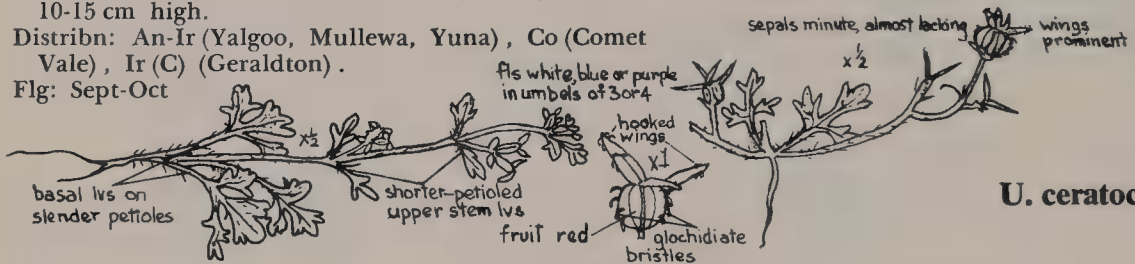 10-15 cm high.
Distribn: An-Ir (Yalgoo, Mullewa, Yuna), Co (Comet
Vale), Ir (C) (Geraldton).
Flg: Sept-Oct
sepals minute, almost lacking
wings
prominent
x½
fls white, blue or purple
in umbels of 3 or 4
x½
hooked
wings
x1
basal lvs on
slender petioles
shorter-petioled
upper stem lvs
fruit red
glochidiate
bristles
U. ceratoc